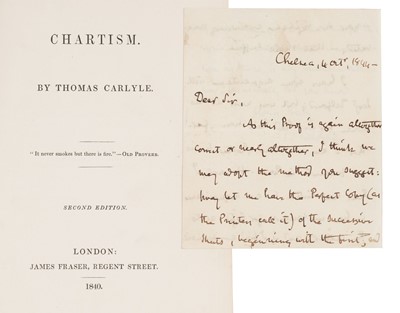 CHARTISM.
BY THOMAS CARLYLE.
"It never smokes but there is fire."—OLD PROVERB.
SECOND EDITION.
LONDON:
JAMES FRASER, REGENT STREET.
1840.
Chelsea, 4 octr,
Dear Sir,
As this Proof is again altogether
correct or nearly altogether, I think we
may adopt the method you suggest:
pray let me have the Perfect Copy (as
the Printers call it) of the succession
sheets, beginning with the first, and